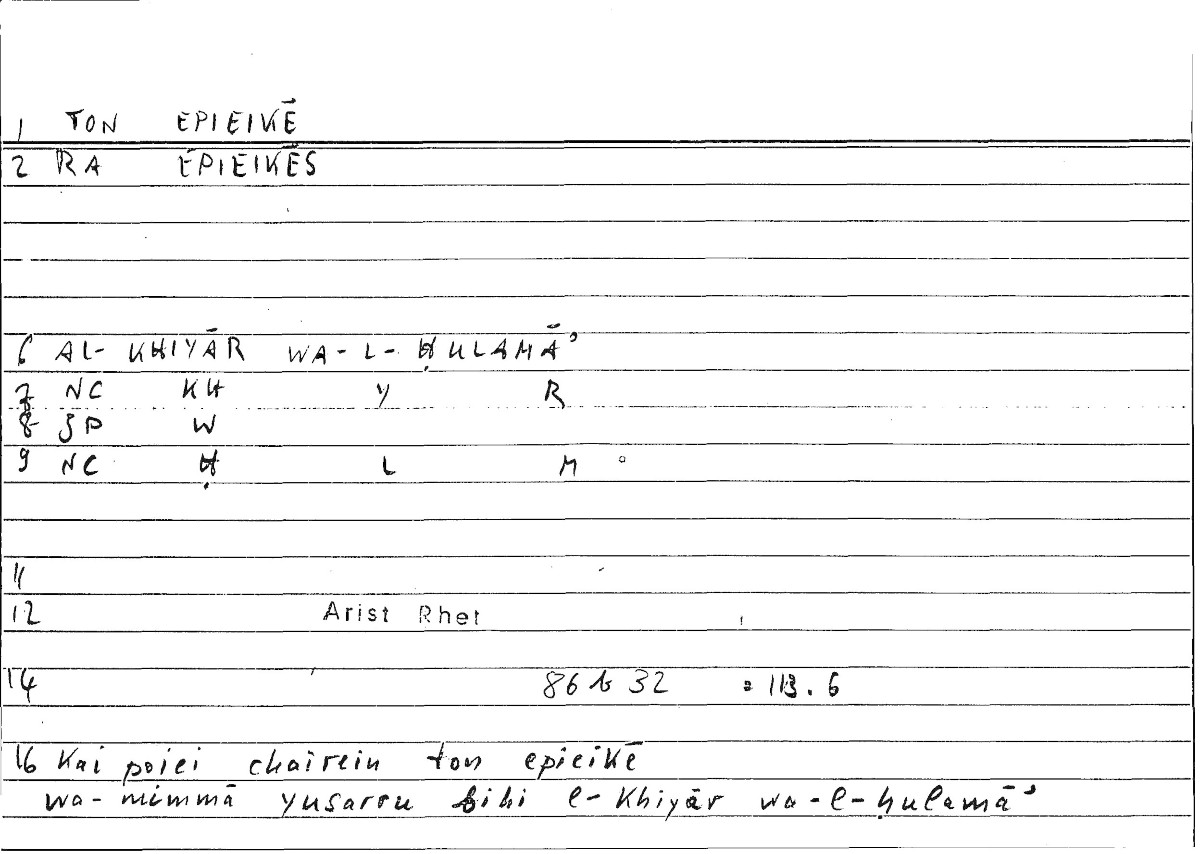 1 TON EPIEIKĒ
2 RA EPIEIKĒS
6 AL- KHIYĀR WA-L-ḤULAMĀʾ
7 NC KH Y R
8 SP W
9 NC Ḥ L M
11
12 Arist Rhet
14 86 b 32 = 113.6
16 Kai poiei chairein ton epieikē
wa-mimmā yusarru bihi l-khiyār wa-l-ḥulamāʾ